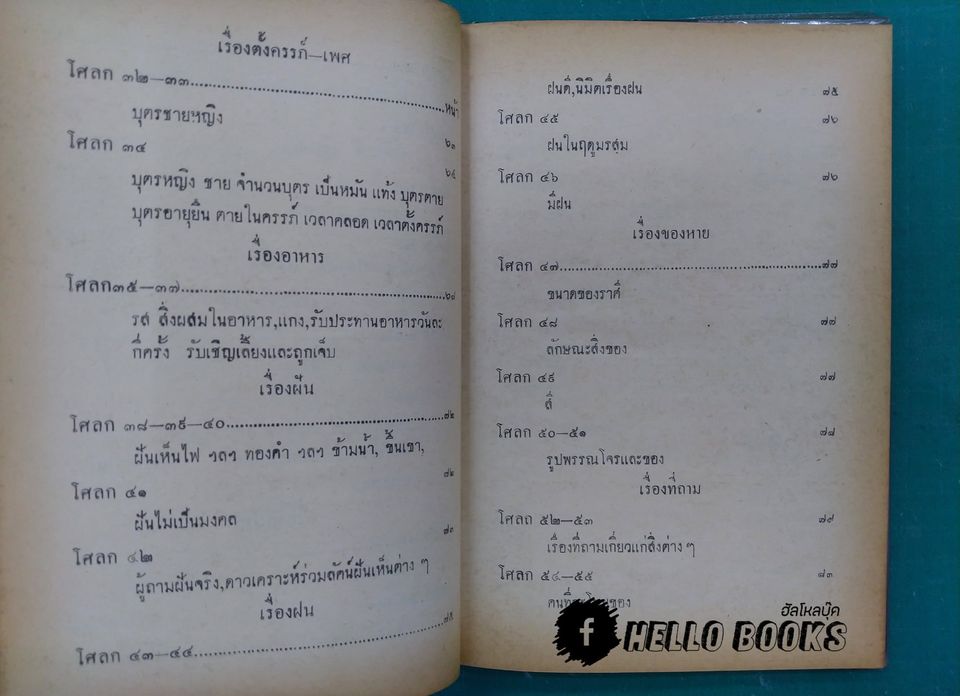 เรื่องตั้งครรภ์—เพศ
โศลก ๓๒—๓๓
หน้า
บุตรชายหญิง
โศลก ๓๔
บุตรหญิง ชาย จำนวนบุตร เป็นหมัน แท้ง บุตรตาย
บุตรอายุยืน ตายในครรภ์ เวลาคลอด เวลาตั้งครรภ์
เรื่องอาหาร
โศลก๓๕—๓๗
รส สิ่งผสมในอาหาร,แกง,รับประทานอาหารวันละ
กี่ครั้ง รับเชิญเลี้ยงและถูกเจ็บ
เรื่องฝัน
โศลก ๓๘—๓๙—๔๐ ๗๒
ฝันเห็นไฟ ฯลฯ ทองคำ ฯลฯ ข้ามน้ำ, ขึ้นเขา,
โศลก ๔๑ ๗๒
ฝันไม่เป็นมงคล
โศลก ๔๒ ๗๓
ผู้ถามฝันจริง,ดาวเคราะห์ร่วมลัคน์ฝันเห็นต่าง ๆ
เรื่องฝน
โศลก ๔๓—๔๔ ๗๕
ฝนดี,นิมิตเรื่องฝน ๗๕
โศลก ๔๕ ๗๖
ฝนในฤดูมรสุม
โศลก ๔๖ ๗๖
มีฝน
เรื่องของหาย
โศลก ๔๗ ๗๗
ขนาดของราศี
โศลก ๔๘ ๗๗
ลักษณะสิ่งของ
โศลก ๔๙ ๗๗
สี
โศลก ๕๐—๕๑ ๗๘
รูปพรรณโจรและของ
เรื่องที่ถาม
โศลก ๕๒—๕๓ ๗๙
เรื่องที่ถามเกี่ยวแก่สิ่งต่าง ๆ
โศลก ๕๔—๕๕ ๘๓
ฮัลโหลบุ๊ค
f HELLO BOOKS